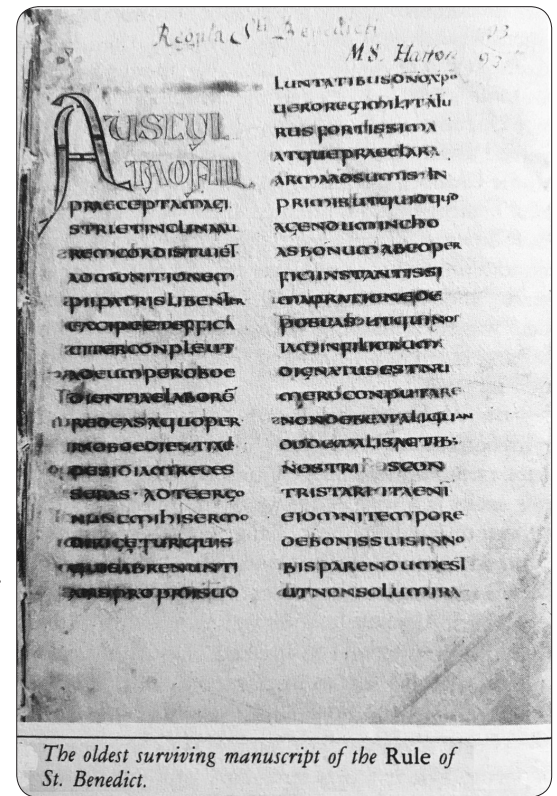 Regula Sti Benedicti
MS. Hatton 93
AUSCUL
TAOFILI
PRAECEPTAMAGI
STRIETINCLINAAU
REMCORDISTUIET
ADMONITIONEM
PIIPATRISLIBENTER
EXCIPEETEFFICA
CITERCONPLEUT
ADEUMPEROBOE
DIENTIAELABORĒ
REDEASAQUOPER
INOBOEDIENTIAE
DESIDIAMRECES
SERAS · ADTEERGO
NUNCMIHISERMO
DIRIGETURQUIS
QUISABRENUNTI
ANSPROPRIISUO
LUNTATIBUSDNOXPO
UEROREGIMILITATU
RUSFORTISSIMA
ATQUEPRAECLARA
ARMAADSUMIS · IN
PRIMISUTQUIDQUID
AGENDUMINCHO
ASBONUMABEOPER
FICIINSTANTISSI
MAORATIONEDE
POSCASUTQUINOS
IAMINFILIORUM
DIGNATUSESTNU
MEROCONPUTARE
NONDEBEATALIQUAN
DODEMALISACTIB;
NOSTRI SCON
TRISTARI · ITAENI
EIOMNITEMPORE
DEBONISSUISINNO
BISPARENDUMEST
UTNONSOLUMIRA
The oldest surviving manuscript of the Rule of
St. Benedict.